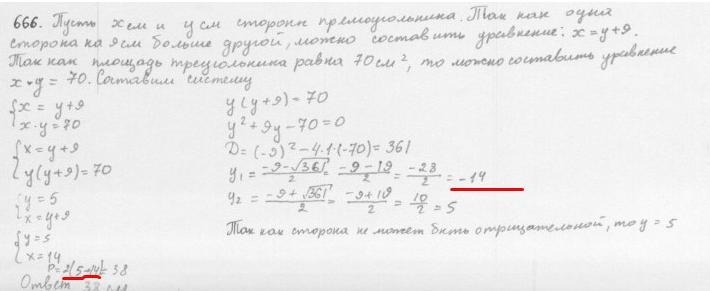 666. Пусть x см и y см стороны прямоугольника. Так как одна
сторона на 9 см больше другой, можно составить уравнение: x=y+9.
Так как площадь треугольника равна 70 см², то можно составить уравнение
x·y = 70. Составим систему
{x = y+9
x·y=70
{x=y+9
y(y+9)=70
{y=5
x=y+9
{y=5
x=14
P=2(5+14)=38
Ответ 38 см
y(y+9)=70
y²+9y-70=0
D=(-9)²-4·1·(-70)=361
y₁=(-9-√361)/2=(-9-19)/2=-28/2=-14
y₂=(-9+√361)/2=(-9+19)/2=10/2=5
Так как сторона не может быть отрицательной, то y = 5